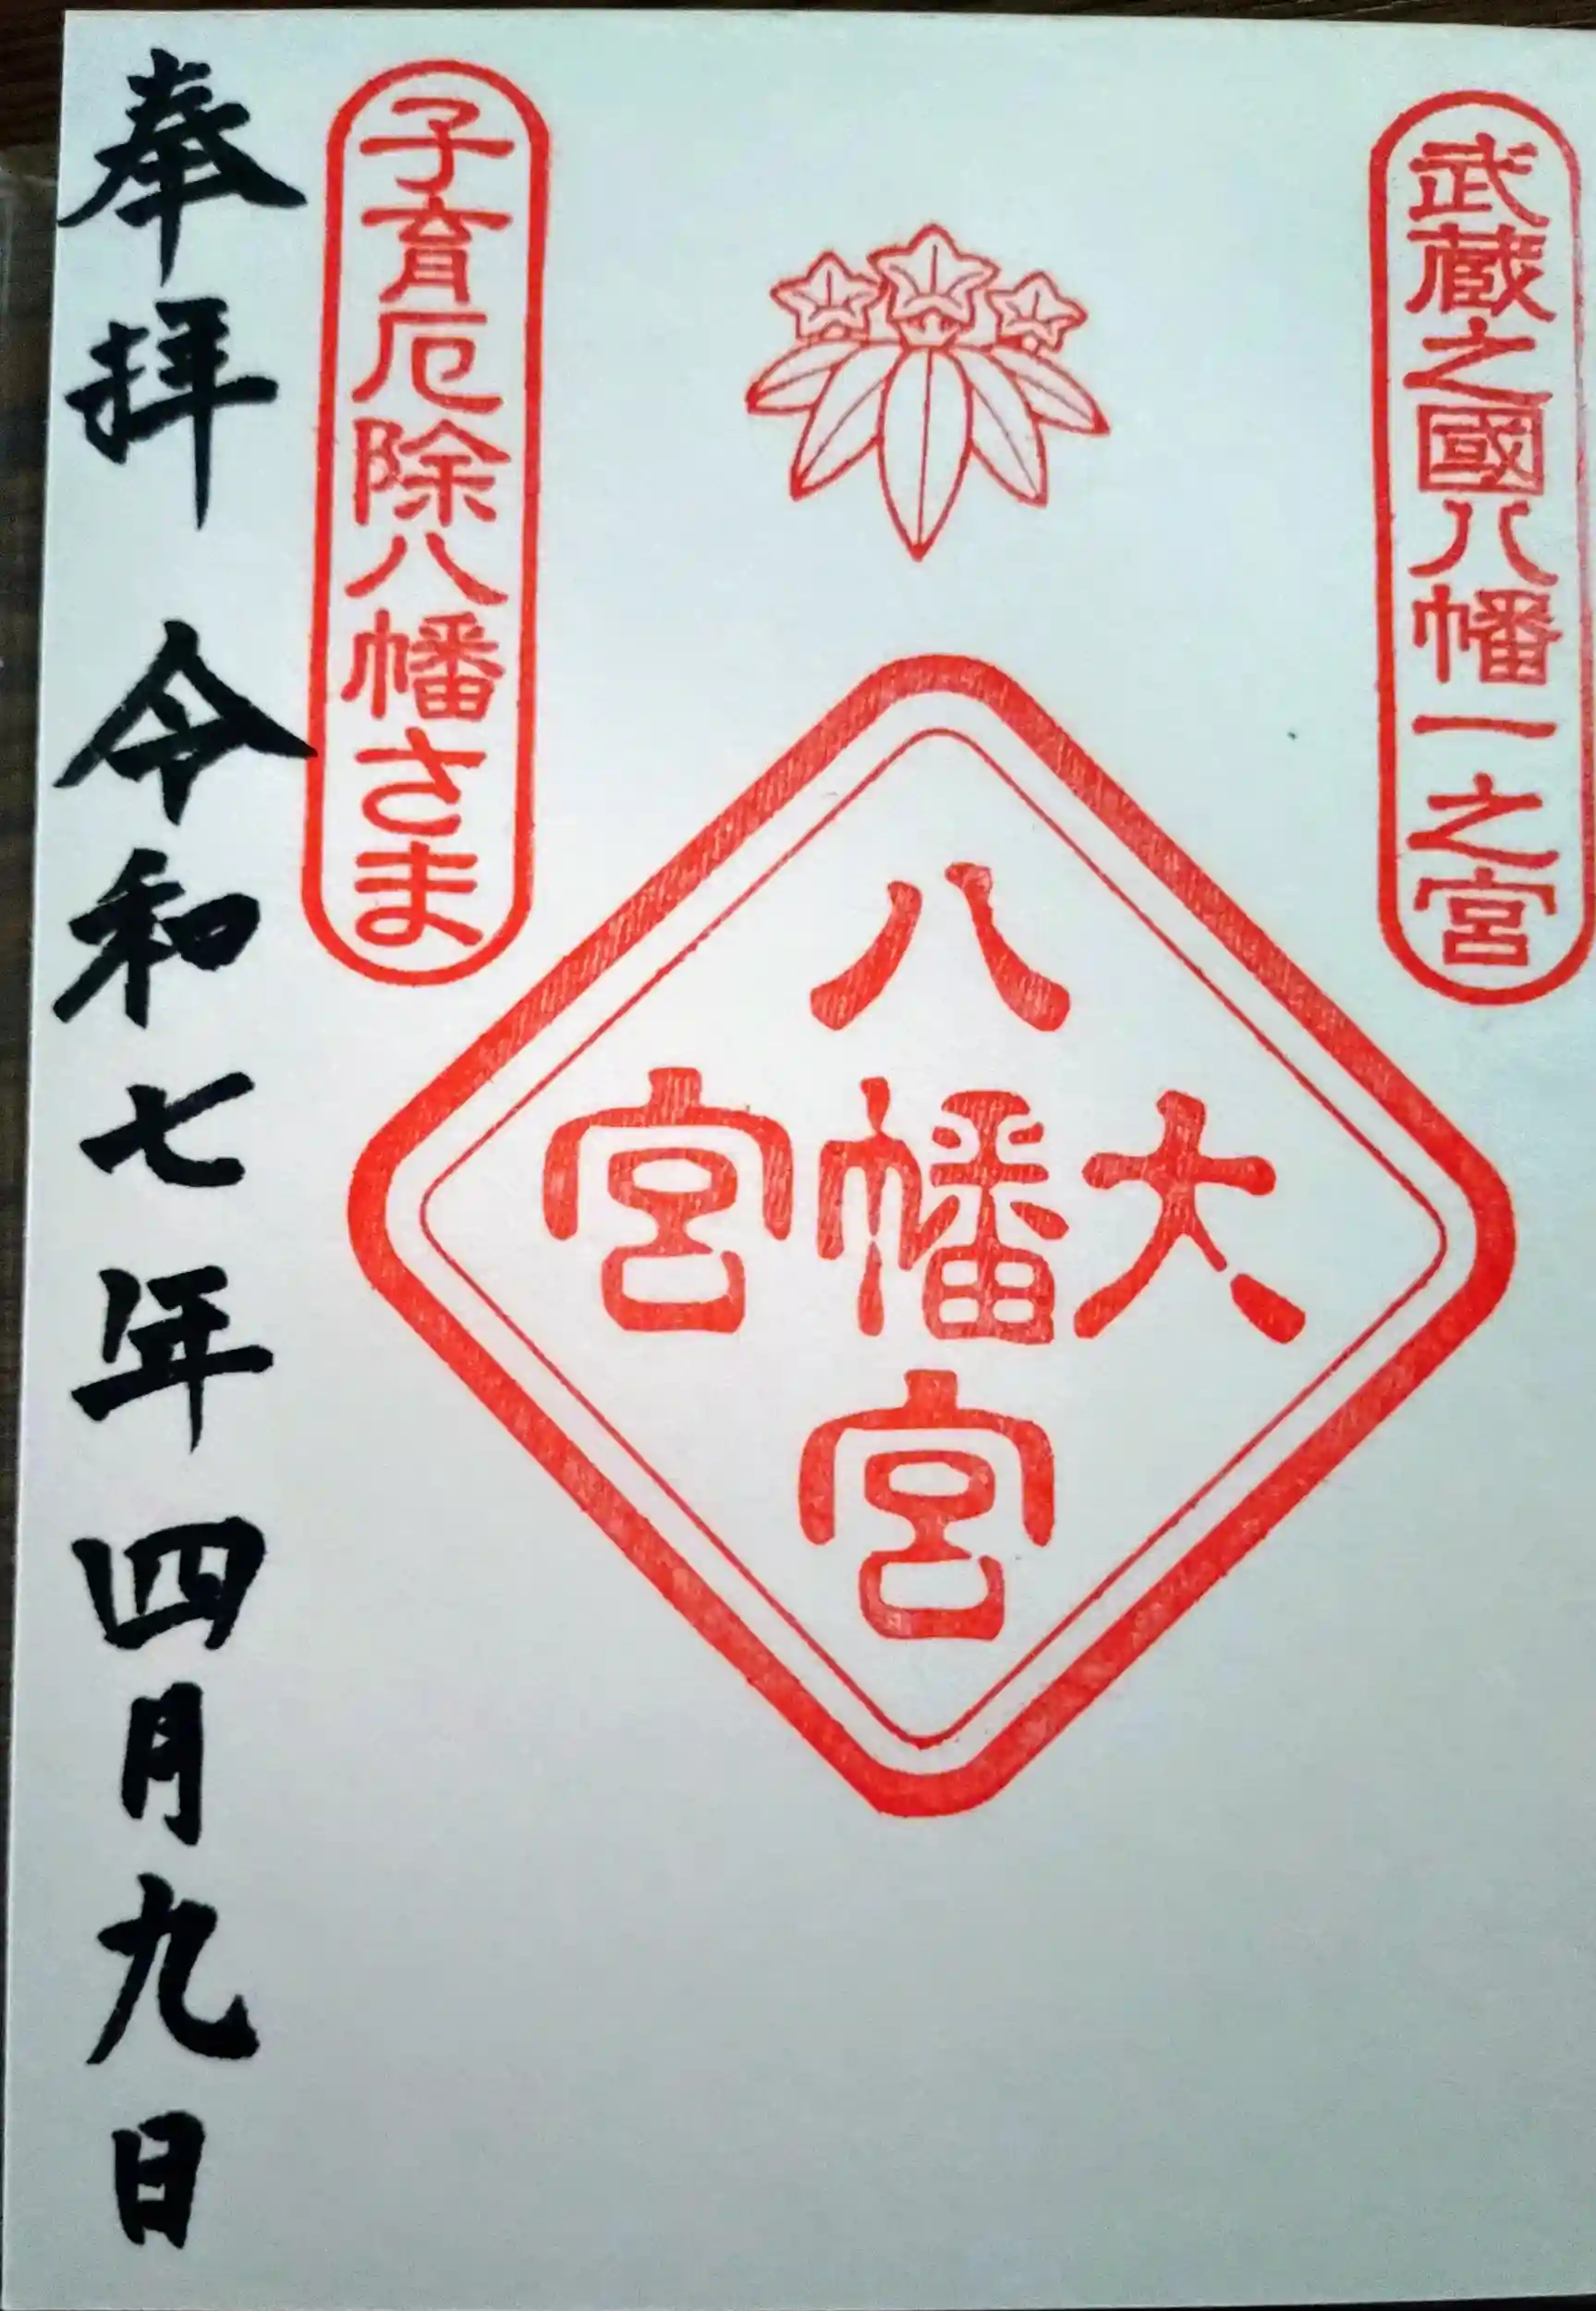 武蔵之國八幡一之宮
八
大幡宮
宮
子育厄除八幡さま
奉拝 令和七年四月九日